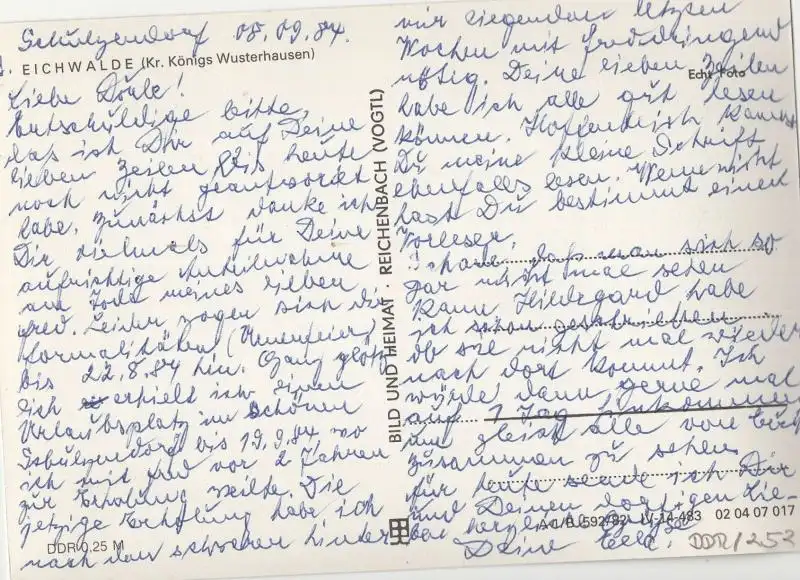 Schulzendorf 08.09.84.
EICHWALDE (Kr. Königs Wusterhausen)
Liebe
Entschuldige bitte,
das ich Dir auf Deine
lieben Zeilen bis heute
noch nicht geantwortet
habe. Zunächst danke ich
Dir vielmals für Deine
aufrichtige Anteilnahme
am Tode meines lieben
Fred. Leider zogen sich die
Formalitäten (Urnenfeier)
bis 22.8.84 hin. Ganz plötz
lich erhielt ich einen
Urlaubsplatz im schönen
Schulzendorf bis 19.9.84 wo
ich mit Fred vor 2 Jahren
zur Erholung weilte. Die
jetzige Erholung habe ich
nach den schweren hinter
DDR 0,25 M
BILD UND HEIMAT · REICHENBACH (VOGTL)
mir liegenden letzten
Wochen mit Fred dringend
nötig. Deine lieben Zeilen
Echt Foto
habe ich alle gut lesen
können. Hoffentlich kannst
Du meine kleine Schrift
ebenfalls lesen. Wenn nicht
hast Du bestimmt einen
Vorleser.
Schade, daß man sich so
gar nicht mal sehen
kann. Hildegard habe
ich schon geschrieben
ob sie nicht mal wieder
nach dort kommt. Ich
würde dann gerne mal
auf 1 Tag hinkommen
um gleich alle von Euch
zusammen zu sehen
für heute sende ich Dir
und Deinen dortigen Lie-
ben herzliche
A 1/B 592/82 IV-14-483 02 04 07 017
Deine
DDR/253